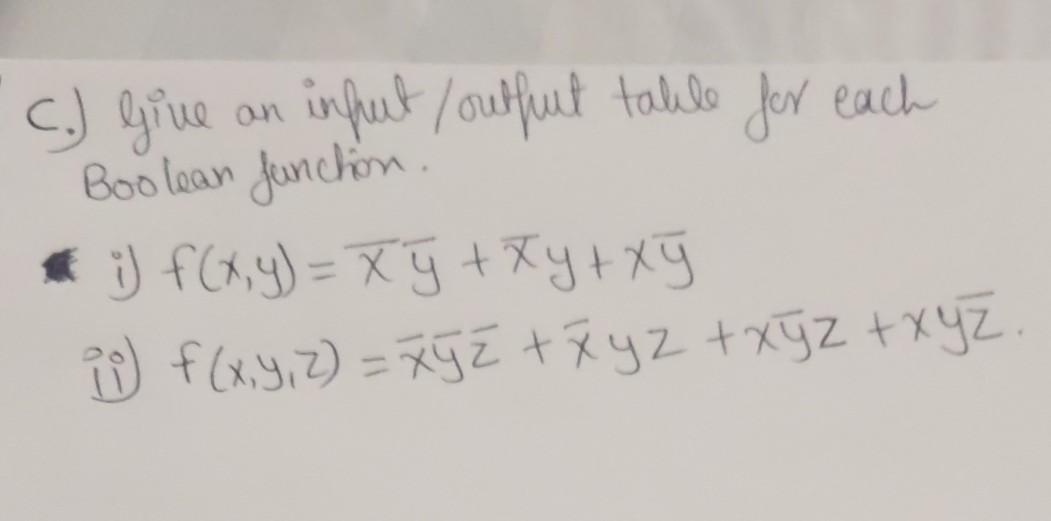 C.) Give an input/output table for each
Boolean function.
i) f(x,y) = x̅ y̅ + x̅y + xy̅
ii) f(x,y,z) = x̅y̅z̅ + x̅yz + xy̅z + xyz̅.